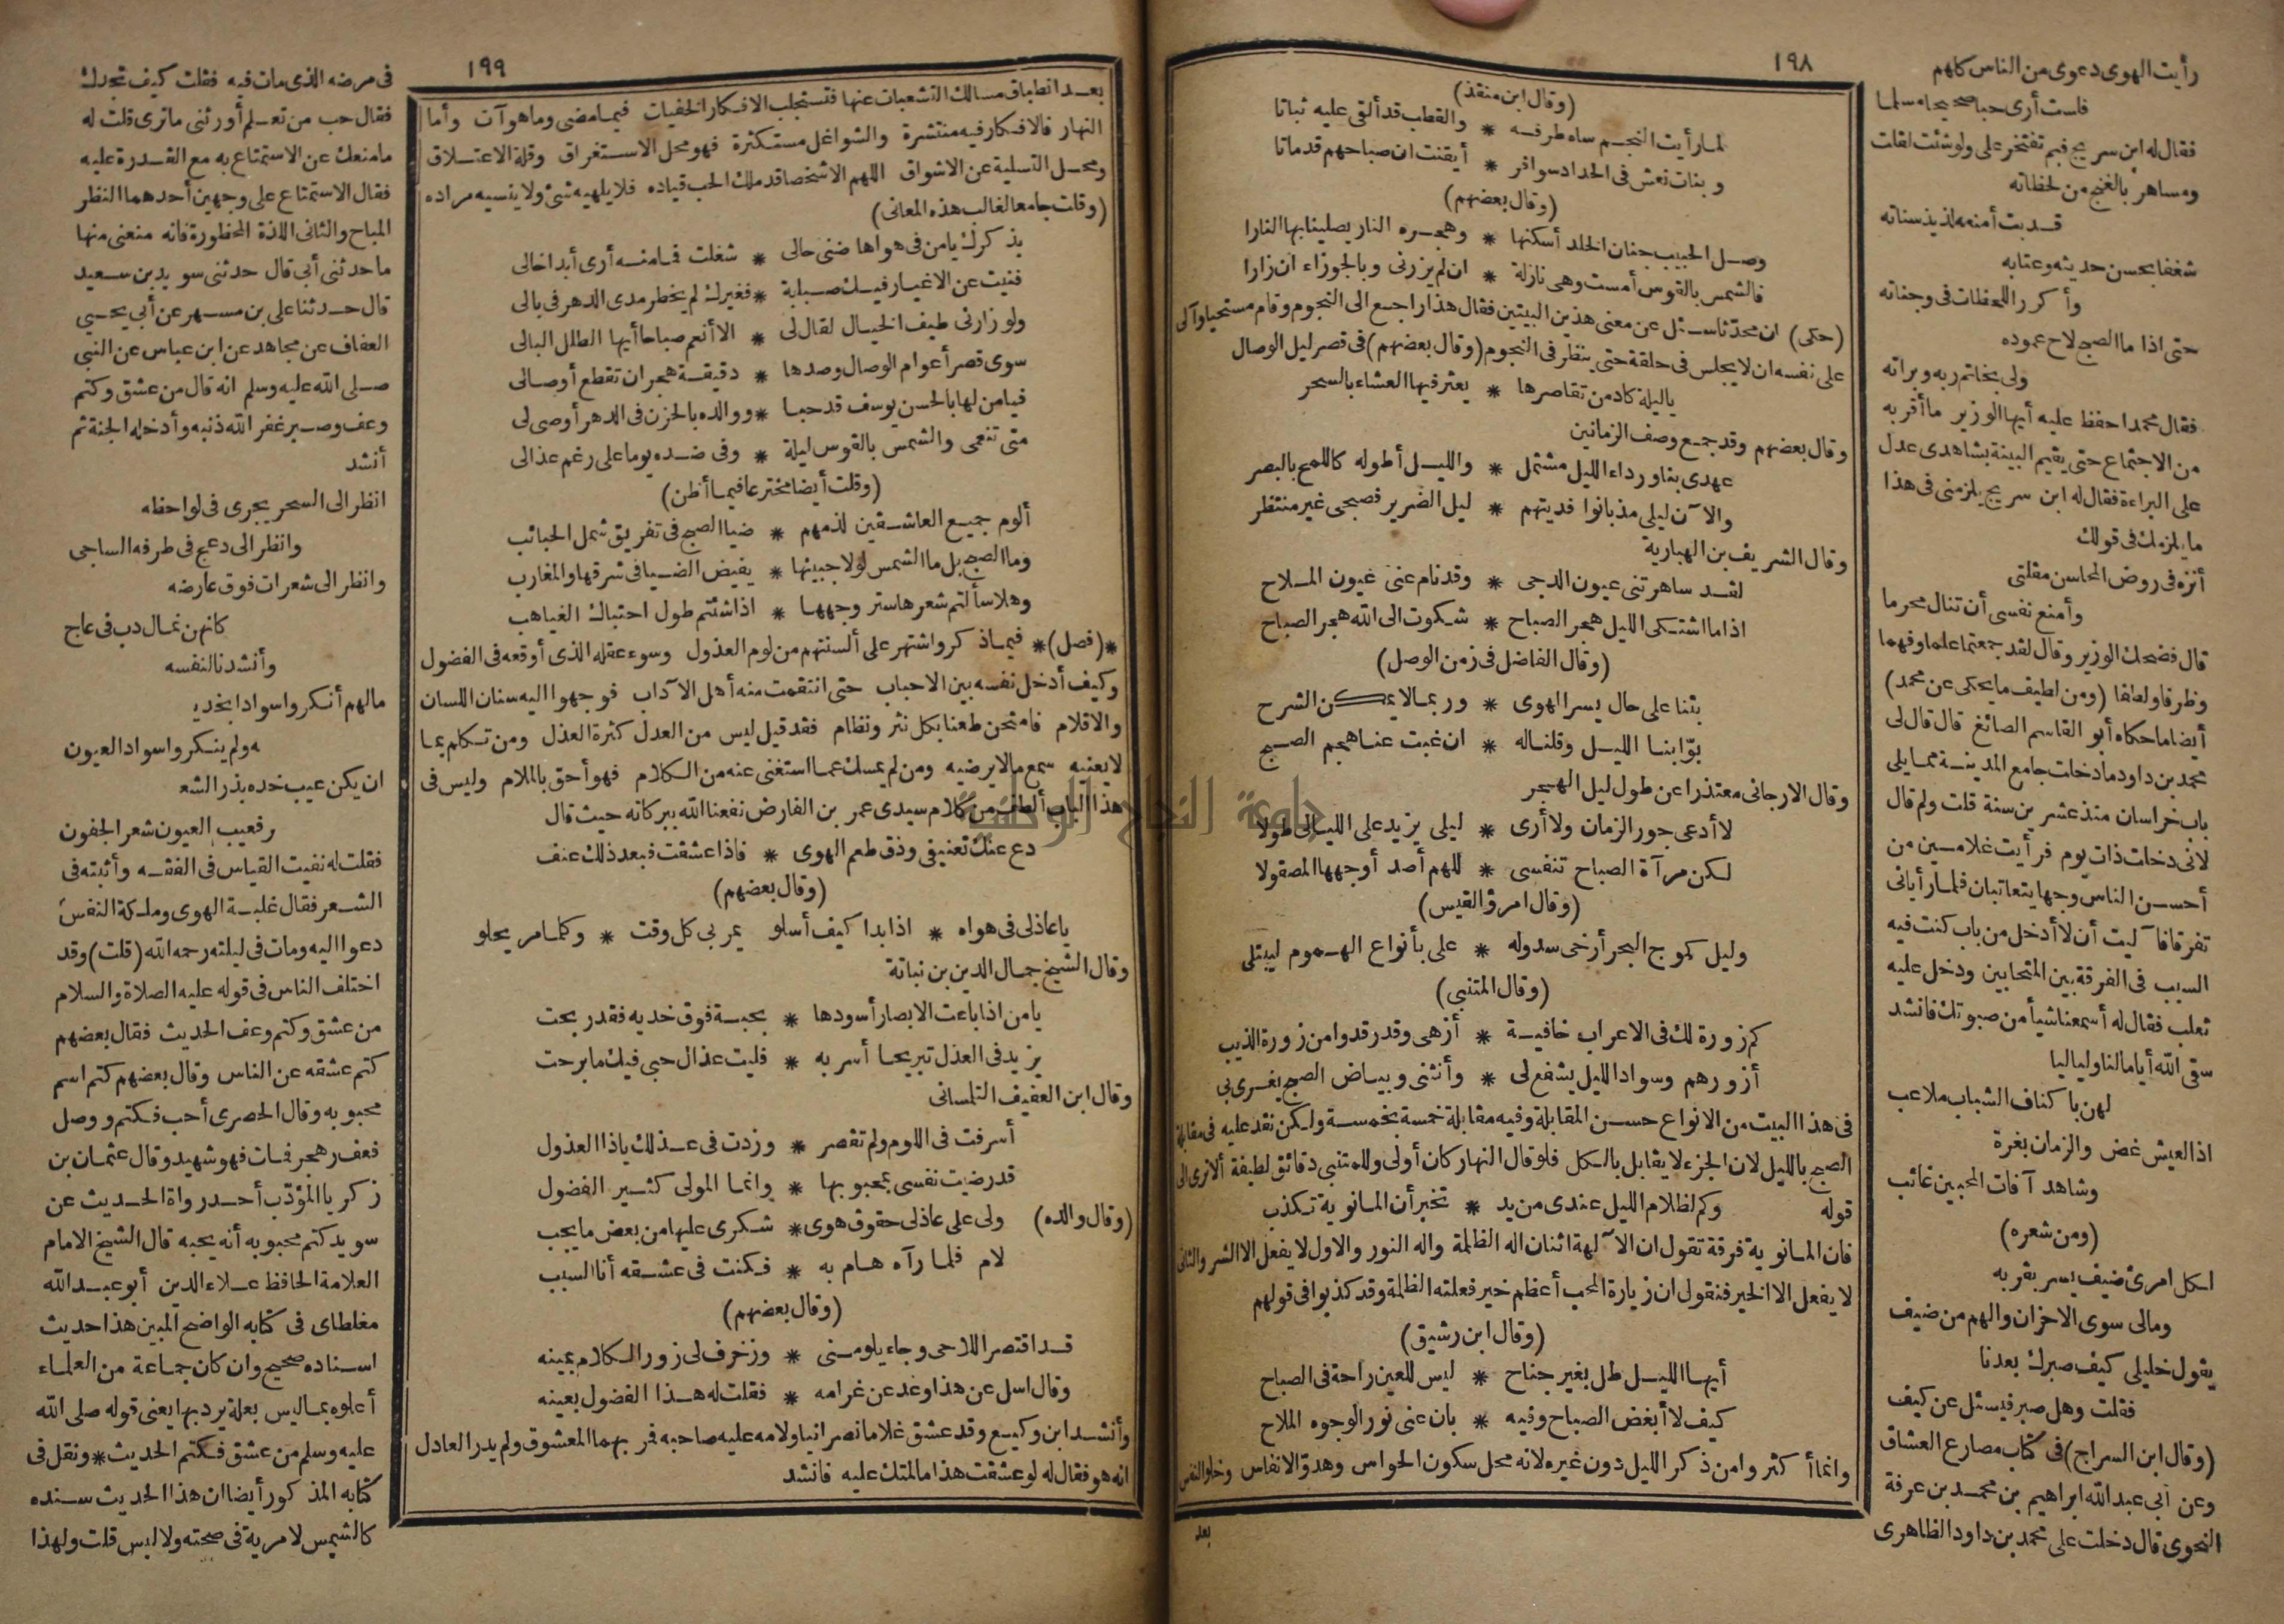 ١٩٨
(وقال ابن منقذ)
لما رأيت النجم ساه طرفه * والقطب قد ألقى عليه ثباتا
وبنات نعش فى الحداد سوافر * أيقنت ان صباحهم قد ماتا
(وقال بعضهم)
وصل الحبيب جنان الخلد أسكنها * وهجره النار يصلينا بها النارا
فالشمس بالقوس أمست وهى نازلة * ان لم يزرنى وبالجوزاء ان زارا
(حكى) ان محدثا سئل عن معنى هذين البيتين فقال هذا راجع الى النجوم وقام مستحيا وآلى
على نفسه ان لا يجلس فى حلقة حتى ينظر فى النجوم (وقال بعضهم) فى قصر ليل الوصال
يا ليلة كاد من تقاصرها * يعثر فيها العشاء بالسحر
وقال بعضهم وقد جمع وصف الزمانين
عهدى بنا ورداء الليل مشتمل * والليل أطوله كاللمح بالبصر
والآن ليلى مذ بانوا فديتهم * ليل الضرير فصبحى غير منتظر
وقال الشريف بن الهبارية
لقد ساهرتنى عيون الدجى * وقد نام عنى عيون الملاح
اذا ما اشتكى الليل هجر الصباح * شكوت الى الله هجر الصباح
(وقال الفاضل فى زمن الوصل)
بتنا على حال يسر الهوى * وربما لا يمكن الشرح
بوّابنا الليل وقلنا له * ان غبت عنا هجم الصبح
وقال الارجانى معتذرا عن طول ليل الهجر
لا أدعى جور الزمان ولا أرى * ليلى يزيد على الليالى طولا
لكن مرآة الصباح تنفسى * للهم أصدأ وجهها المصقولا
(وقال امرؤ القيس)
وليل كموج البحر أرخى سدوله * على بأنواع الهموم ليبتلى
(وقال المتنبى)
كم زورة لك فى الاعراب خافية * أزهى وقد رقدوا من زورة الذيب
أزورهم وسواد الليل يشفع لى * وأنثنى وبياض الصبح يغرى بى
فى هذا البيت من الانواع حسن المقابلة وفيه مقابلة خمسة بخمسة ولكن نقد عليه فى مقابلة
الصبح بالليل لان الجزء لا يقابل بالكل فلو قال النهار كان أولى وللمتنبى دقائق لطيفة ألا ترى الى
قوله وكم لظلام الليل عندى من يد * تخبر أن المانوية تكذب
فان المانوية فرقة تقول ان الآلهة اثنان اله الظلمة واله النور والاول لا يفعل الا الشر والثانى
لا يفعل الا الخير فنقول ان زيارة المحب أعظم خير فعلته الظلمة وقد كذبوا فى قولهم
(وقال ابن رشيق)
أيها الليل طل بغير جناح * ليس للعين راحة فى الصباح
كيف لا أبغض الصباح وفيه * بان عنى نور الوجوه الملاح
وانما أكثروا من ذكر الليل دون غيره لانه محل سكون الحواس وهدوّ الانفاس وخلو النفس
بعد
رأيت الهوى دعوى من الناس كلهم
فلست أرى حبا صحيحا مسلما
فقال له ابن سريج فبم تفتخر على ولو شئت لقلت
ومساهر بالغنج من لحظاته
قد بت أمنعه لذيذ سناته
شغفا بحسن حديثه وعتابه
وأكرر اللحظات فى وجناته
حتى اذا ما الصبح لاح عموده
ولى بخاتم ربه وبراته
فقال محمد احفظ عليه أيها الوزير ما أقر به
من الاجتماع حتى يقيم البينة بشاهدى عدل
على البراءة فقال له ابن سريج يلزمنى فى هذا
ما يلزمك فى قولك
أنزه فى روض المحاسن مقلتى
وأمنع نفسى أن تنال محرما
قال فضحك الوزير وقال لقد جمعتما علما وفهما
وظرفا ولطفا (ومن لطيف ما يحكى عن محمد)
أيضا ما حكاه أبو القاسم الصائغ قال قال لى
محمد بن داود ما دخلت جامع المدينة مما يلى
باب خراسان منذ عشرين سنة قلت ولم قال
لانى دخلت ذات يوم فرأيت غلامين من
أحسن الناس وجها يتعاتبان فلما رأيانى
تفرقا فآليت أن لا أدخل من باب كنت فيه
السبب فى الفرقة بين المتحابين ودخل عليه
ثعلب فقال له أسمعنا شيأ من صبوتك فانشد
سقى الله أياما لنا ولياليا
لهن باكناف الشباب ملاعب
اذ العيش غض والزمان بغرة
وشاهد آفات المحبين غائب
(ومن شعره)
لكل امرئ ضيف يسر بقربه
ومالى سوى الاحزان والهم من ضيف
يقول خليلى كيف صبرك بعدنا
فقلت وهل صبر فيسئل عن كيف
(وقال ابن السراج) فى كتاب مصارع العشاق
وعن أبى عبد الله ابراهيم بن محمد بن عرفة
النحوى قال دخلت على محمد بن داود الظاهرى
١٩٩
بعد انطباق مسالك التشعبات عنها فتستجلب الافكار الخفيات فيما مضى وما هو آت وأما
النهار فالافكار فيه منتشرة والشواغل مستكثرة فهو محل الاستغراق وقلة الاعتلاق
ومحل التسلية عن الاشواق اللهم الا شخصا قد ملك الحب قياده فلا يلهيه شئ ولا ينسيه مراده
(وقلت جامعا لغالب هذه المعانى)
بذكرك يا من فى هواها ضنى حالى * شغلت فما منه أرى أبدا خالى
فنيت عن الاغيار فيك صبابة * فغيرك لم يخطر مدى الدهر فى بالى
ولو زارنى طيف الخيال لقال لى * الا أنعم صباحا أيها الطلل البالى
سوى قصر أعوام الوصال وصدها * دقيقة هجران تقطع أوصالى
فيا من لها بالحسن يوسف قد حبا * ووالده بالحزن فى الدهر أوصى لى
متى تنعمى والشمس بالقوس ليلة * وفى ضده يوما على رغم عذالى
(وقلت أيضا مخترعا فيما أظن)
ألوم جميع العاشقين لذمهم * ضيا الصبح فى تفريق شمل الحبائب
وما الصبح بل ما الشمس لولا جبينها * يفيض الضيا فى شرقها والمغارب
وهلا سألتم شعرها ستر وجهها * اذا شئتم طول احتباك الغياهب
*(فصل)* فيما ذكر واشتهر على ألسنتهم من لوم العذول وسوء عقله الذى أوقعه فى الفضول
وكيف أدخل نفسه بين الاحباب حتى انتقمت منه أهل الآداب فوجهوا اليه سنان اللسان
والاقلام فامتحن طعنا بكل نثر ونظام فقد قيل ليس من العدل كثرة العذل ومن تكلم بما
لا يعنيه سمع ما لا يرضيه ومن لم يمسك عما استغنى عنه من الكلام فهو أحق بالملام وليس فى
هذا الباب ألطف من كلام سيدى عمر بن الفارض نفعنا الله ببركاته حيث قال
دع عنك تعنيفى وذق طعم الهوى * فاذا عشقت فبعد ذلك عنف
(وقال بعضهم)
يا عاذلى فى هواه * اذا بدا كيف أسلو يمر بى كل وقت * وكلما مر يحلو
وقال الشيخ جمال الدين بن نباتة
يا من اذا باعت الابصار أسودها * بحبسة فوق خديه فقد ربحت
يزيد فى العذل تبريحا أسر به * فليت عذال حبى فيك ما برحت
وقال ابن العفيف التلمسانى
أسرفت فى اللوم ولم تقصر * وزدت فى عذلك يا ذا العذول
قد رضيت نفسى بمحبوبها * وانما المولى كثير الفضول
(وقال والده) ولى على عاذلى حقوق هوى * شكرى عليها من بعض ما يجب
لام فلما رآه هام به * فكنت فى عشقه أنا السبب
(وقال بعضهم)
قد اقتصر اللاحى وجاء يلومنى * وزخرف لى زور الكلام بمينه
وقال اسل عن هذا وعد عن غرامه * فقلت له هذا الفضول بعينه
وأنشد ابن وكيع وقد عشق غلاما نصرانيا ولامه عليه صاحبه فمر بهما المعشوق ولم يدر العاذل
انه هو فقال له لو عشقت هذا ما لمتك عليه فانشد
فى مرضه الذى مات فيه فقلت كيف تجدك
فقال حب من تعلم أورثنى ما ترى قلت له
ما منعك عن الاستمتاع به مع القدرة عليه
فقال الاستمتاع على وجهين أحدهما النظر
المباح والثانى اللذة المحظورة فانه منعنى منها
ما حدثنى أبى قال حدثنى سويد بن سعيد
قال حدثنا على بن مسهر عن أبى يحيى
العفاف عن مجاهد عن ابن عباس عن النبى
صلى الله عليه وسلم انه قال من عشق وكتم
وعف وصبر غفر الله ذنبه وأدخله الجنة ثم
أنشد
انظر الى السحر يجرى فى لواحظه
وانظر الى دعج فى طرفه الساجى
وانظر الى شعرات فوق عارضه
كانهن نمال دب فى عاج
وأنشدنا لنفسه
مالهم أنكروا سوادا بخدي
ه ولم ينكروا سواد العيون
ان يكن عيب خده بذر الشع
ر فعيب العيون شعر الجفون
فقلت له نفيت القياس فى الفقه وأثبته فى
الشعر فقال غلبة الهوى وملكة النفس
دعوا اليه ومات فى ليلته رحمه الله (قلت) وقد
اختلف الناس فى قوله عليه الصلاة والسلام
من عشق وكتم وعف الحديث فقال بعضهم
كتم عشقه عن الناس وقال بعضهم كتم اسم
محبوبه وقال الحصرى أحب فكتم ووصل
فعف وهجر فمات فهو شهيد وقال عثمان بن
زكريا المؤدّب أحد رواة الحديث عن
سويد كتم محبوبه أنه يحبه قال الشيخ الامام
العلامة الحافظ علاء الدين أبو عبد الله
مغلطاى فى كتابه الواضح المبين هذا حديث
اسناده صحيح وان كان جماعة من العلماء
أعلوه بما ليس بعلة يرد بها يعنى قوله صلى الله
عليه وسلم من عشق فكتم الحديث * ونقل فى
كتابه المذكور أيضا ان هذا الحديث سنده
كالشمس لا مرية فى صحته ولا لبس قلت ولهذا